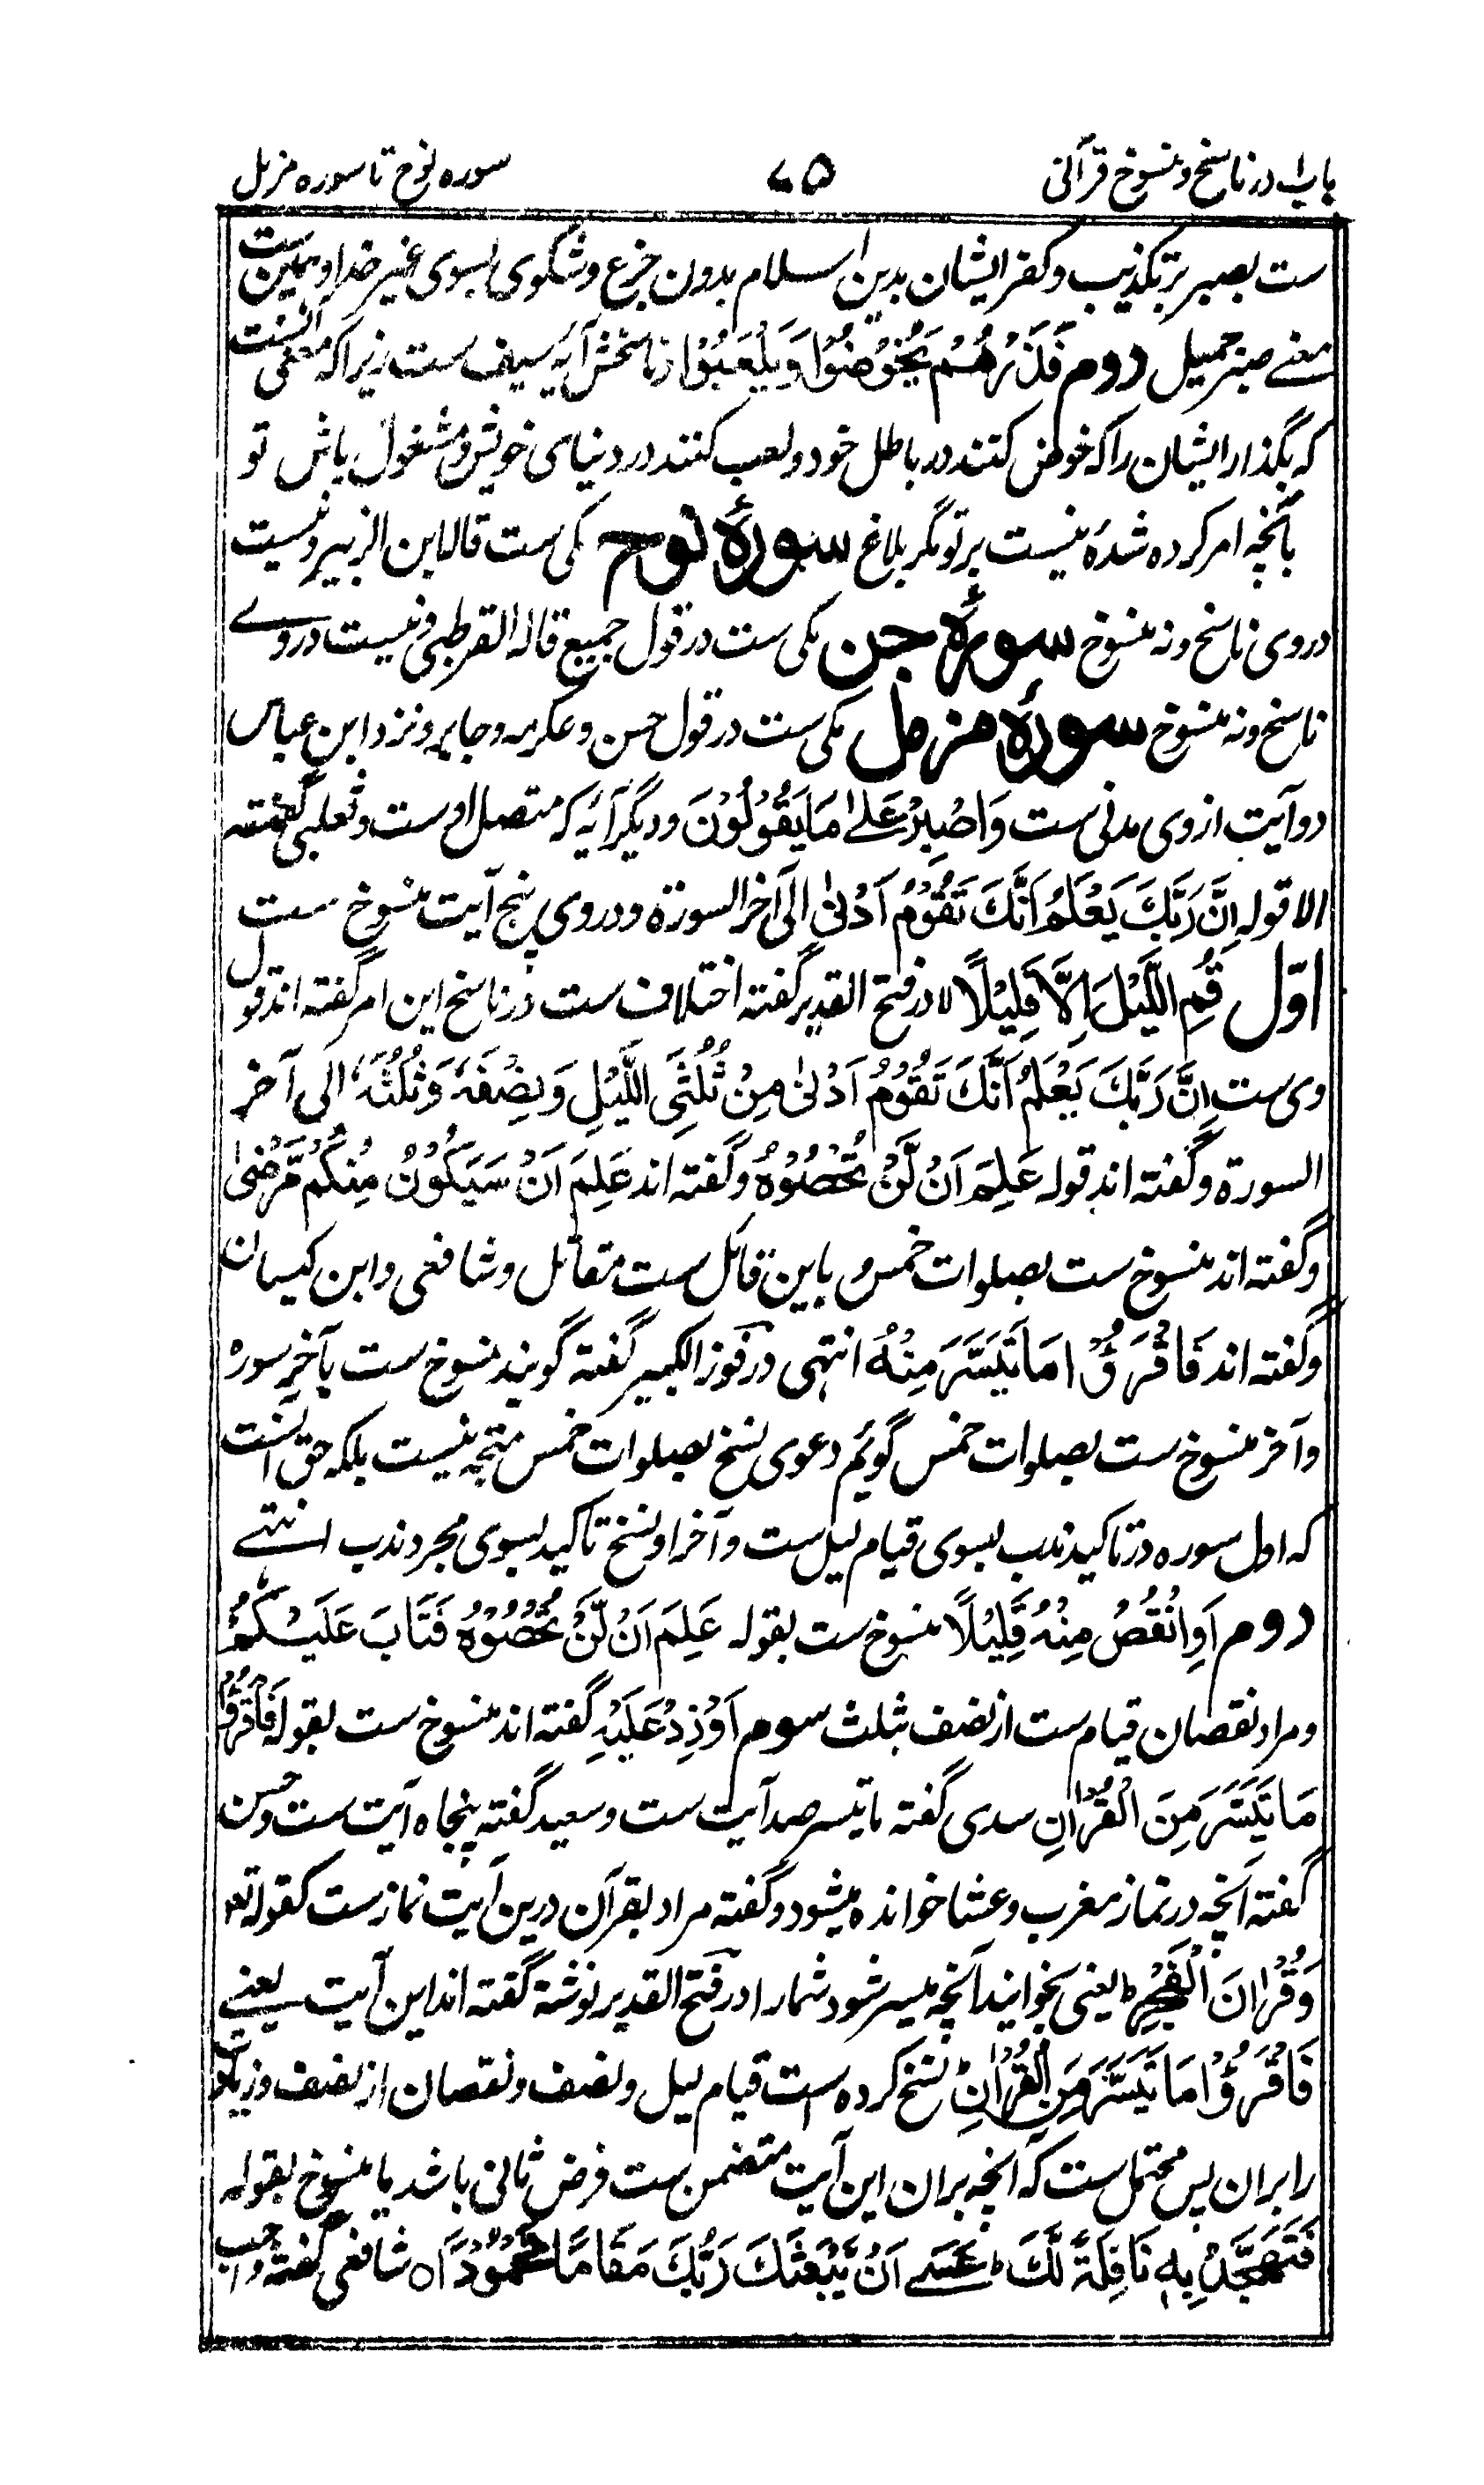 باب ا در ناسخ و منسوخ قرآنی ۷۵ سوره نوح تا سوره مزمل
ست بصبر بر تکذیب و کفر ایشان بدین اسلام بدون جزع و شکوی بسوی غیر خدا و همین ست
معنے صبر جمیل دوم فَذَرْهُمْ یَخُوْضُوْا وَیَلْعَبُوْا ناسخش آیۂ سیف ست زیراکہ معنی آنست
کہ بگذار ایشان را کہ خوض کنند در باطل خود و لعب کنند در دنیای خویش و مشغول باش تو
بآنچہ امر کردہ شدۂ نیست بر تو مگر بلاغ سورۂ نوح مکی ست قالہ ابن الزبیر و نیست
در وی ناسخ و نہ منسوخ سورۂ جن مکی ست در قول جمیع قالہ القرطبی و نیست در وے
ناسخ و نہ منسوخ سورۂ مزمل مکی ست در قول حسن و عکرمہ و جابر و نزد ابن عباس
دو آیت از وی مدنی ست وَاصْبِرْ عَلٰے مَا یَقُوْلُوْنَ و دیگر آیۂ کہ متصل اوست و ثعلبی گفتہ
الا قولہ اِنَّ رَبَّكَ یَعْلَمُ اَنَّكَ تَقُوْمُ اَدْنیٰ الی آخر السورة و در وی پنج آیت منسوخ ست
اوّل قُمِ اللَّیْلَ اِلَّا قَلِیْلًا لا در فتح القدیر گفتہ اختلاف ست در ناسخ این امر گفتہ اند قول
وی ست اِنَّ رَبَّكَ یَعْلَمُ اَنَّكَ تَقُوْمُ اَدْنیٰ مِنْ ثُلُثَیِ اللَّیْلِ وَنِصْفَهٗ وَثُلُثَهٗ الی آخر
السورة و گفتہ اند قولہ عَلِمَ اَنْ لَّنْ تُحْصُوْهُ و گفتہ اند عَلِمَ اَنْ سَیَكُوْنُ مِنْكُمْ مَّرْضیٰ
و گفتہ اند منسوخ ست بصلوات خمس و باین قائل ست مقاتل و شافعی و ابن کیسان
و گفتہ اند فَاقْرَؤُا مَا تَیَسَّرَ مِنْهُ انتہی در فوز الکبیر گفتہ گویند منسوخ ست بآخر سورہ
و آخر منسوخ ست بصلوات خمس گویم دعوی نسخ بصلوات خمس متجہ نیست بلکہ حق آنست
کہ اول سورہ در تاکید ندب بسوی قیام لیل ست و آخر او نسخ تاکید بسوی مجرد ندب انتہے
دوم اَوِ انْقُصْ مِنْهُ قَلِیْلًا منسوخ ست بقولہ عَلِمَ اَنْ لَّنْ تُحْصُوْهُ فَتَابَ عَلَیْكُمْ
و مراد نقصان قیام ست از نصف بثلث سوم اَوْ زِدْ عَلَیْهِ گفتہ اند منسوخ ست بقولہ فَاقْرَؤُا
مَا تَیَسَّرَ مِنَ الْقُرْاٰنِ سدی گفتہ ما تیسر صد آیت ست و سعید گفتہ پنجاہ آیت ست و حسن
گفتہ آنچہ در نماز مغرب و عشا خواندہ میشود و گفتہ مراد بقرآن درین آیت نماز ست کقولہ تعہ
وَقُرْاٰنَ الْفَجْرِ ط یعنی بخوانید آنچہ میسر شود شما را در فتح القدیر نوشتہ گفتہ اند این آیت یعنے
فَاقْرَؤُا مَا تَیَسَّرَ مِنَ الْقُرْاٰنِ ط نسخ کردہ است قیام لیل و نصف و نقصان از نصف و زیادت
را بران پس محتمل ست کہ آنچہ بران این آیت متضمن ست فرض ثانی باشد یا منسوخ بقولہ
فَتَهَجَّدْ بِهٖ نَافِلَةً لَّكَ ط عَسٰے اَنْ یَّبْعَثَكَ رَبُّكَ مَقَامًا مَّحْمُوْدًا ہ شافعی گفتہ واجب